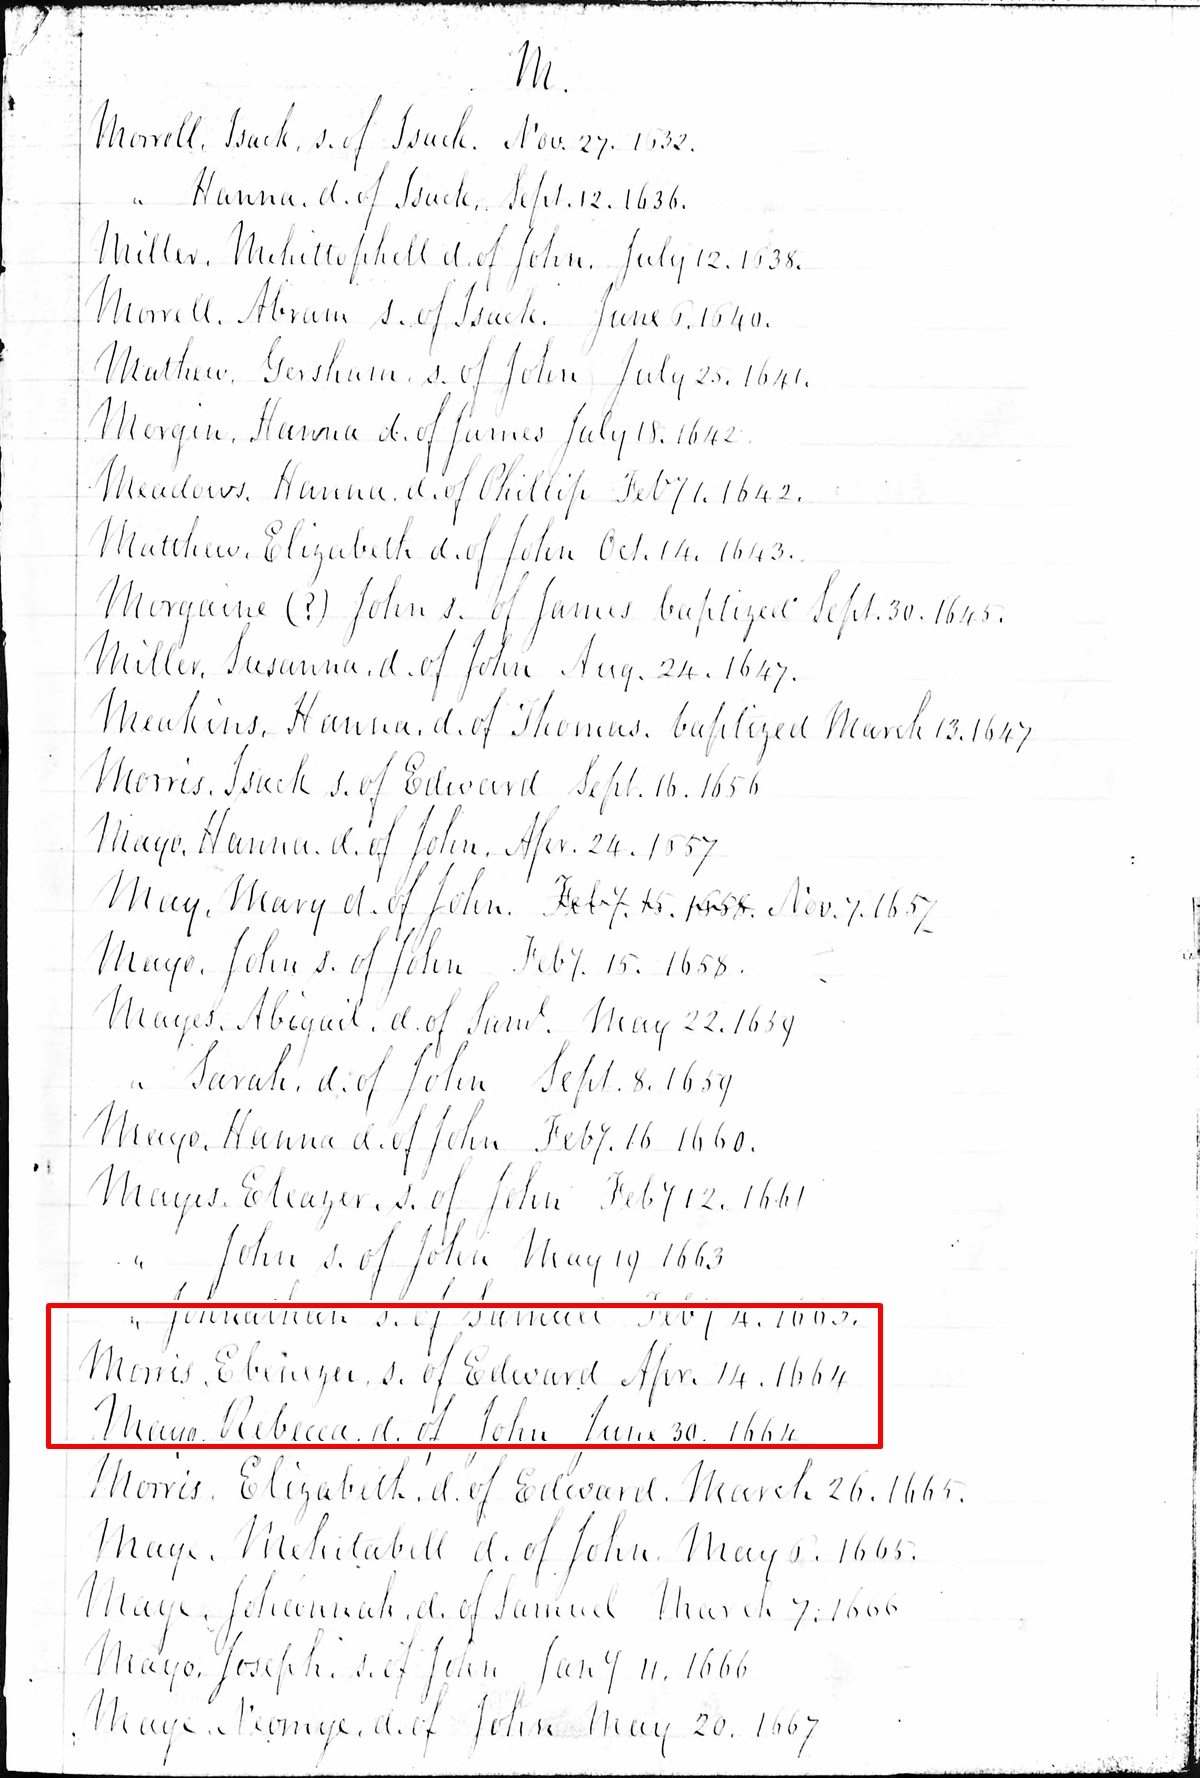 M.
Morrell, Isack, s. of Isack. Nov. 27. 1632.
" Hanna. d. of Isack, Sept. 12. 1636.
Miller, Mehittophell d. of John. July 12. 1638.
Morrell, Abram s. of Isack. June 6. 1640.
Mathew, Gersham, s. of John July 25. 1641.
Morgin, Hanna d. of James July 18. 1642.
Meadows, Hanna. d. of Phillip Feby 1. 1642.
Matthew, Elizabeth d. of John Oct. 14. 1643.
Morgaine (?) John s. of James baptized Sept. 30. 1645.
Miller, Susanna. d. of John Aug. 24. 1647.
Meakins, Hanna. d. of Thomas. baptized March 13. 1647
Morris, Isack s. of Edward Sept. 16. 1656
Mayo, Hanna. d. of John. Apr. 24. 1657
May, Mary d. of John. Feby. 15. 1658. Nov. 7. 1657
Mayo, John s. of John Feby. 15. 1658.
Mayes, Abigail. d. of Saml. May 22. 1659
" Sarah. d. of John Sept. 8. 1659
Mayo, Hanna d. of John Feby. 16 1660.
Mayes, Eleazer, s. of John Feby 12. 1661
" John s. of John May 19 1663
" Johnathan s. of Samuel Feby 4. 1663.
Morris, Ebenezer, s. of Edward Apr. 14. 1664
Mayo, Rebecca. d. of John June 30. 1664
Morris, Elizabeth. d. of Edward. March 26. 1665.
Maye, Mehitabell d. of John. May 6. 1665.
Maye, Johannah. d. of Samuel March 7. 1666
Mayo, Joseph. s. of John Jany 11. 1666
Maye, Neomye. d. of John May 20. 1667